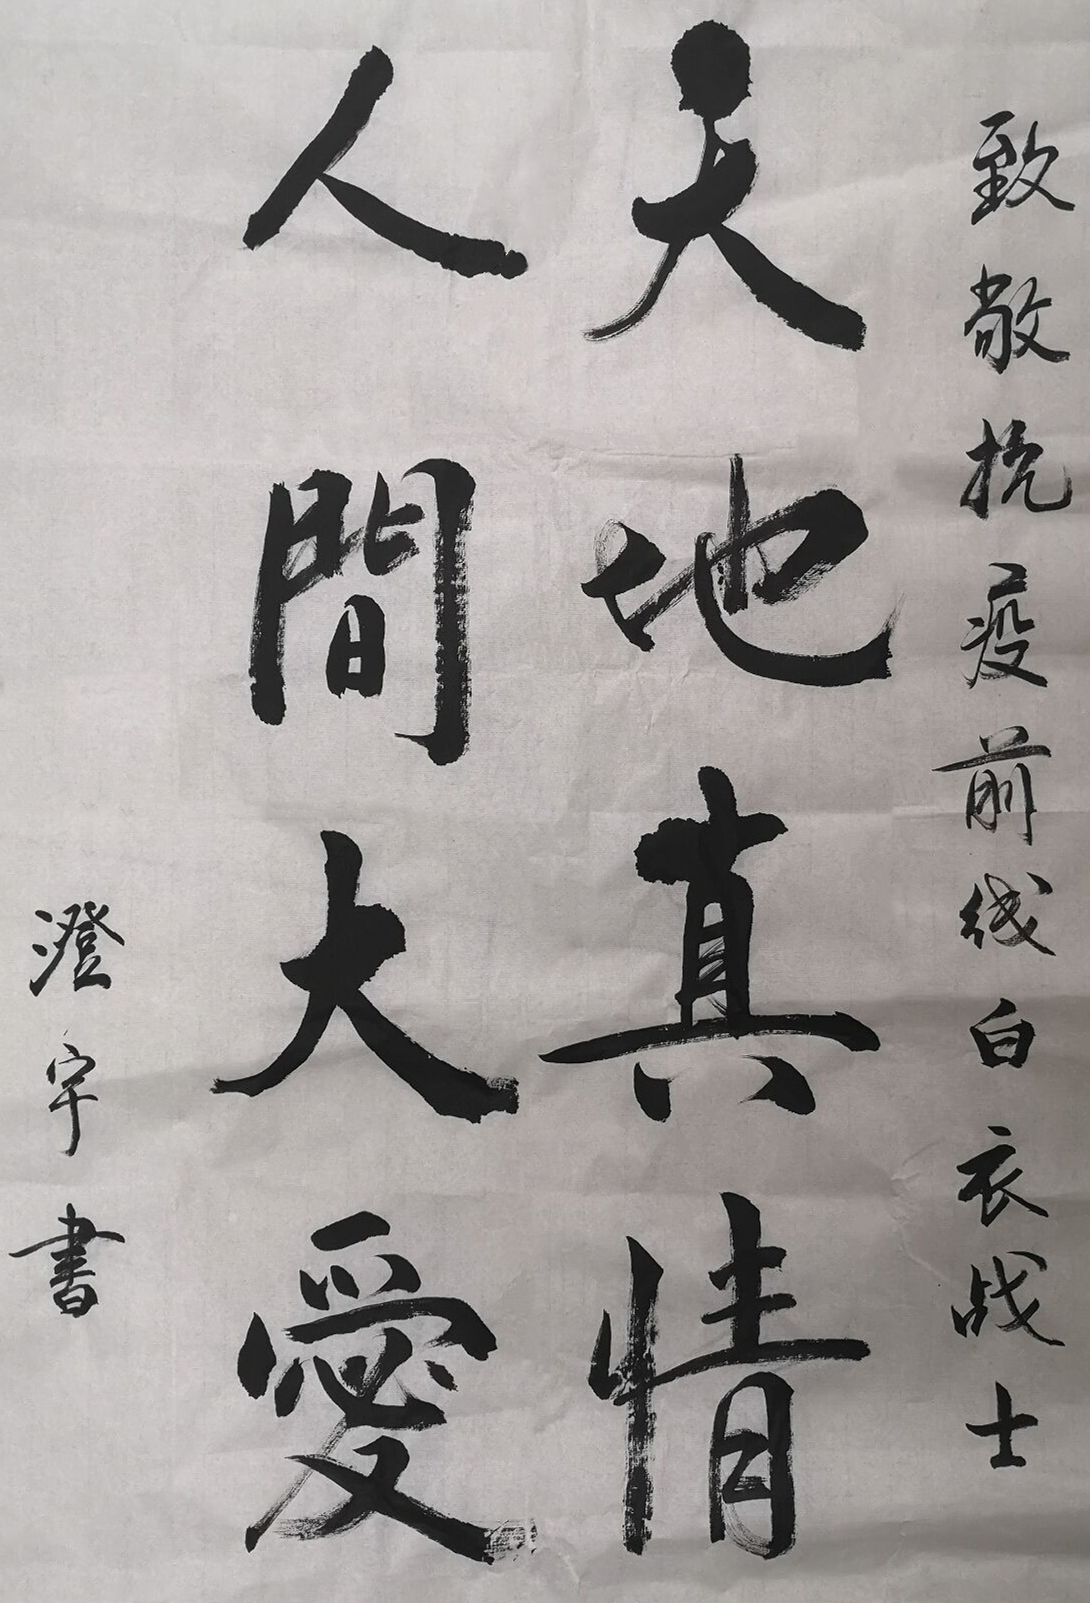 致敬抗疫前线白衣战士
天地真情
人間大愛
澄宇書